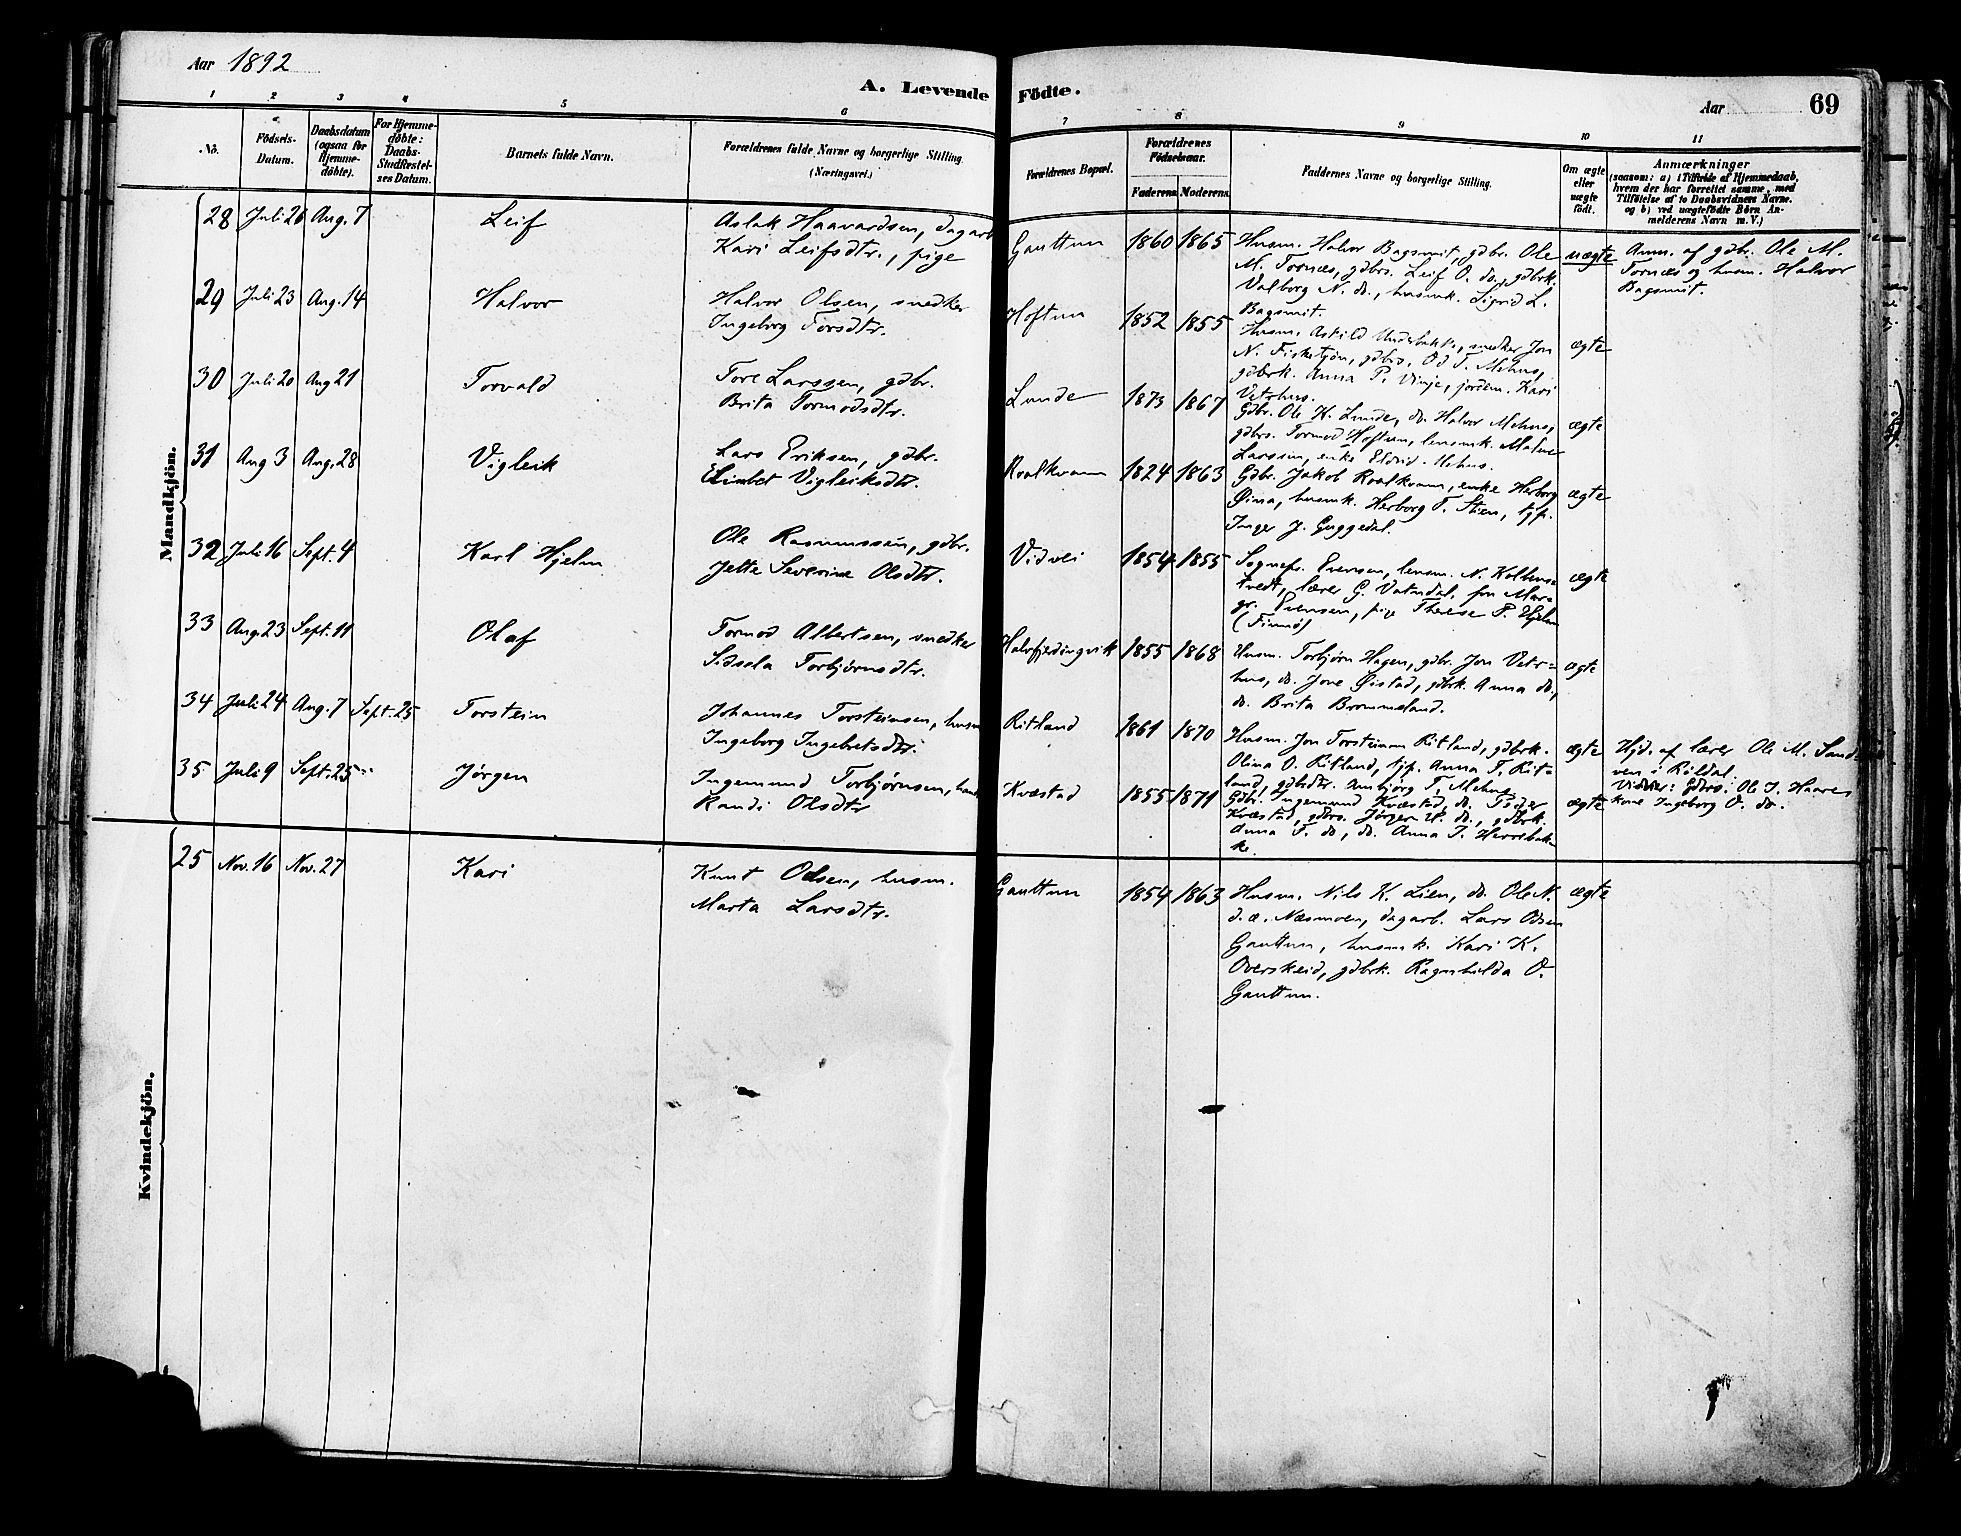 Aar 1892
A. Levende Födte.
Aar 69
1 2 3 4 5 6 7 8 9 10 11
No.
Födsels-
Datum.
Daabsdatum
(ogsaa for
Hjemme-
döbte).
For Hjemme-
döbte:
Daabs-
Stadfæstel-
ses Datum.
Barnets fulde Navn.
Forældrenes fulde Navne og borgerlige Stilling
(Næringsvei.)
Forældrenes Bopæl.
Forældrenes
Födselsaar.
Faderens. Moderens.
Faddernes Navne og borgerlige Stilling.
Om ægte
eller
uægte
födt.
Anmærkninger
(saasom: a) i Tilfælde af Hjemmedaab,
hvem der har forrettet samme, med
Tilföielse af to Daabsvidners Navne.
og b) ved uægtefödte Börn An-
melderens Navn m. V.)
Mandkjön.
28 Juli 26 Aug. 7 Leif
Aslak Haavardsen, dagarb
Kari Leifsdtr., pige
Gauttun 1860 1865
Husm. Halvor Bagsmit, gdbr. Ole
M. Tornæs, gdbrs. Leif O. do., gdbrk.
Valborg N. do., husmk. Sigrid L.
Bagsmit.
uægte
Anm. af gdbr. Ole M.
Tornæs og husm. Halvor
Bagsmit.
29 Juli 23 Aug. 14 Halvor
Halvor Olsen, snedker
Ingeborg Torsdtr.
Hoftun 1852 1855
Husm. Askild Underbakke, snedker Jon
N. Fisketjøn, gdbrs. Od T. Mehus,
gdbrk. Anna P. Vinje, jordem. Kari
Vetrhus.
ægte
30 Juli 20 Aug 21 Torvald
Tore Larssen, gdbr.
Brita Tormodsdtr.
Lunde 1873 1867
Gdbr. Ole K. Lunde, do. Halvor Mehus,
gdbrs. Tormod Hoftun, lensmk. Malene
Larssen, enke Eldrid Mehus.
ægte
31 Aug 3 Aug. 28 Vigleik
Lars Eriksen, gdbr.
Elisabet Vigleiksdtr.
Roalkvam 1824 1863
Gdbr. Jakob Roalkvam, enke Herborg
Øina, husmk. Herborg T. Stien, tjp.
Inger J. Guggedal.
ægte
32 Juli 16 Sept. 4 Karl Hjelm
Ole Rasmussen, gdbr.
Jette Severine Olsdtr.
Vidvei 1854 1855
Sognepr. Evensen, lensm. N. Kolbens-
tvedt, lærer G. Vatndal, fru Mar-
gr. Evensen, pige Therese P. Hjelm
(Finnø)
ægte
33 Aug. 23 Sept. 11 Olaf
Tormod Albertsen, snedker
Sidsela Torbjørnsdtr.
Halvfjerdingvik 1855 1868
Husm. Torbjørn Hagen, gdbr. Jon Vetr-
hus, do. Jone Øistad, gdbrk. Anna do,
do. Brita Brommeland.
ægte
34 Juli 24 Aug. 7 Sept. 25 Torstein
Johannes Torsteinsen, husm
Ingeborg Ingebretsdtr.
Ritland 1861 1870
Husm. Jon Torsteinsen Ritland, gdbrk.
Olina O. Ritland, tjp. Anna T. Rit-
land, gdbrdtr. Anbjørg T. Mehus
ægte
Hjd. af lærer Ole M. Sand-
ven i Røldal.
Vidner: Gdbrs. Ole J. Haare,
kone Ingeborg O. do.
35 Juli 9 Sept. 25 Jørgen
Ingemund Torbjørnsen,
Randi Olsdtr
Kvæstad 1855 1871
Gdbr. Ingemund Kvæstad, do. Peder
Kvæstad, gdbrs. Jørgen do., gdbrk.
Anna T. do, do. Anna T. Herrebak-
ke.
ægte
Kvindekjön.
25 Nov. 16 Nov. 27 Kari
Knut Odsen, husm.
Marta Larsdtr.
Gauttun 1854 1863
Husm. Nils K. Lien, do. Ole N.
d.æ. Næsmoen, dagarb. Lars Odsen
Gauttun, husmk. Kari K.
Overskeid, gdbrk. Ragnhilda O.
Gauttun.
ægte